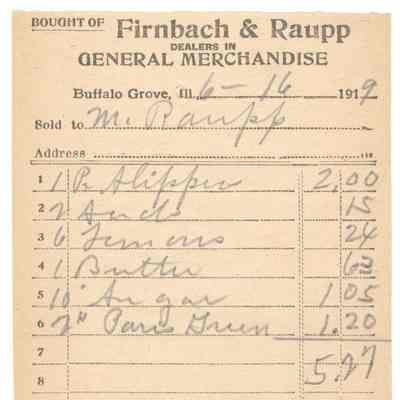 BOUGHT OF Firnbach & Raupp
DEALERS IN
GENERAL MERCHANDISE
Buffalo Grove, Ill 6-16 1919
Sold to M. Raupp
Address
1 1 Pr Slipper 2.00
2 2 15
3 6 Lemons 24
4 1 Butter 63
5 10" Sugar 1 05
6 2" Paris Green 1.20
7 5.27
8